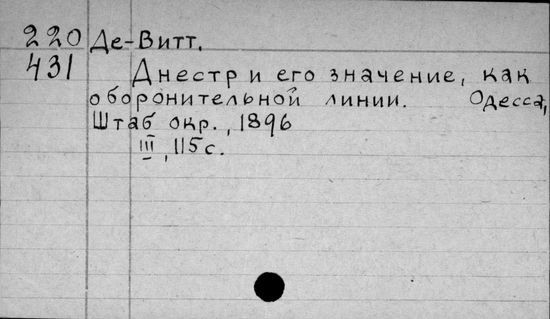 220 Де-Витт.
431 Днестр и его значение, как
оборонительной линии. Одесса,
Штаб окр., 1896
III, 115 с.